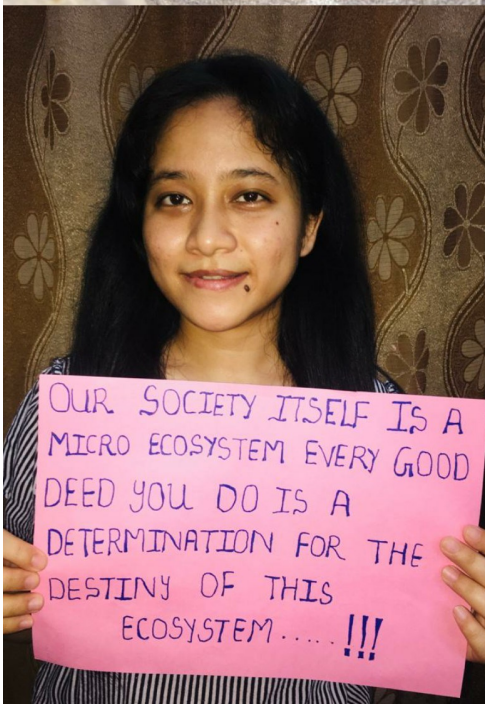 OUR SOCIETY ITSELF IS A
MICRO ECOSYSTEM EVERY GOOD
DEED YOU DO IS A
DETERMINATION FOR THE
DESTINY OF THIS
ECOSYSTEM.....!!!